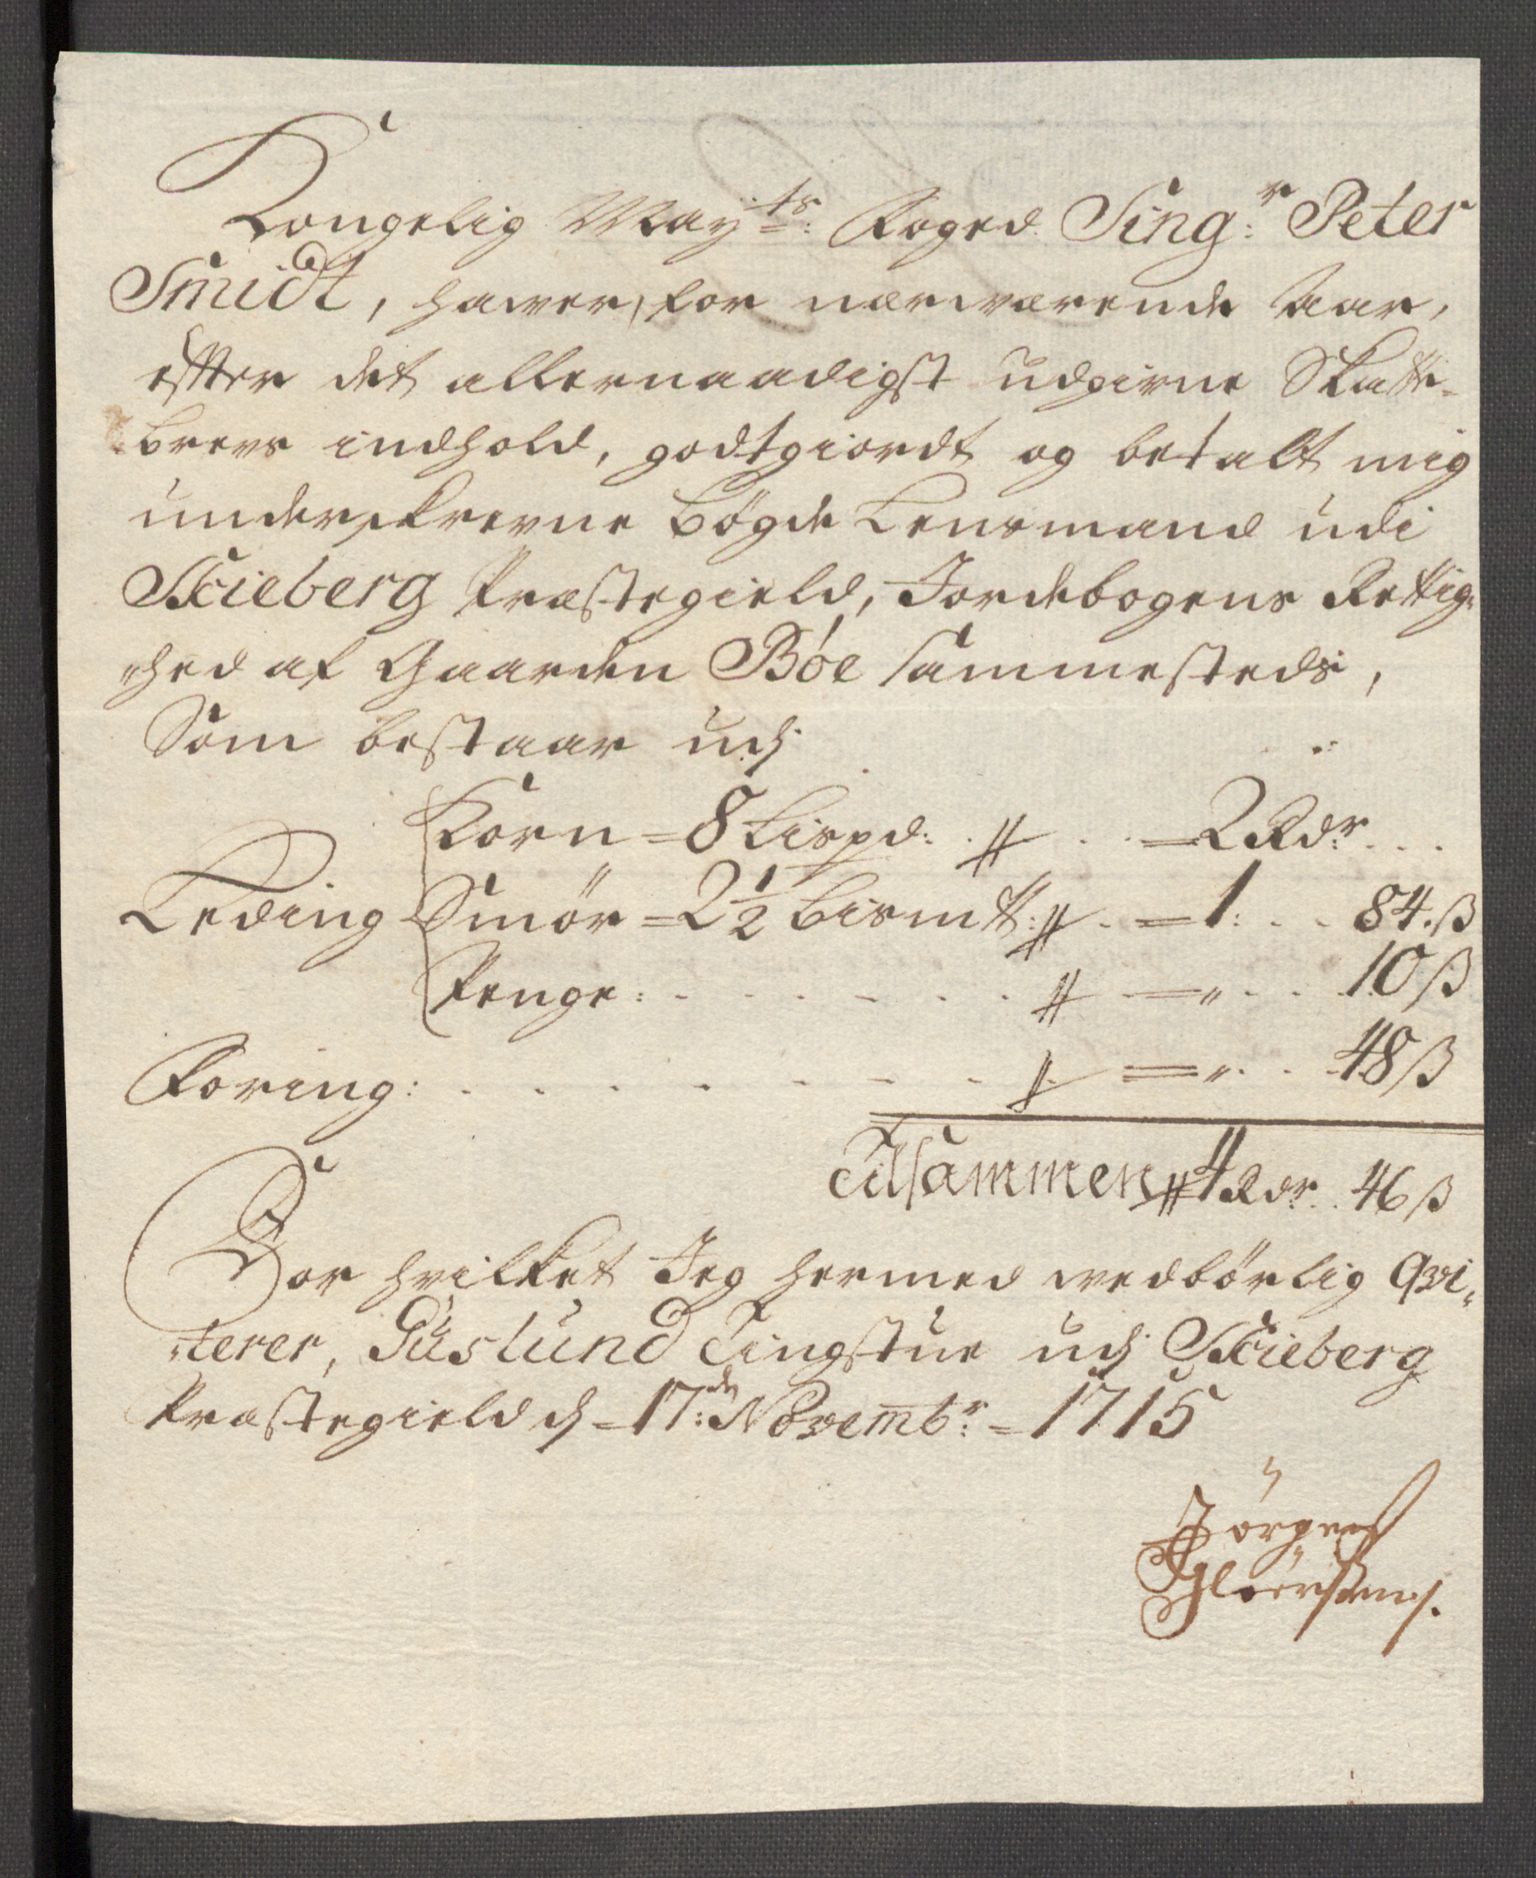 Kongelig May:ts Foged Sing:r Peter
Smidt, hawer, for nærwærende Aar,
efter det allernaadigst udgivne Skatte-
brevs indhold, godtgiordt og betalt mig
underskrevne Bøgde Lensmand udi
Skieberg Præstegield, Jordebogens Rettig-
hed af Gaarden Bøe sammesteds,
Som bestaar udj
Korn = 8 Lispd: # = 2 Rdr
Leding Smør = 2 1/2 bismt: # = 1: 84 ß
Penge: # = " 10 ß
Foring: # = " 48 ß
Tilsammen # 4 Rdr: 46 ß
For hvilket Jeg hermed wedbørlig qvi-
terer, Guslund Tingstue udj Skieberg
Præstegield d - 17:de Novembr: = 1715
Jørgen